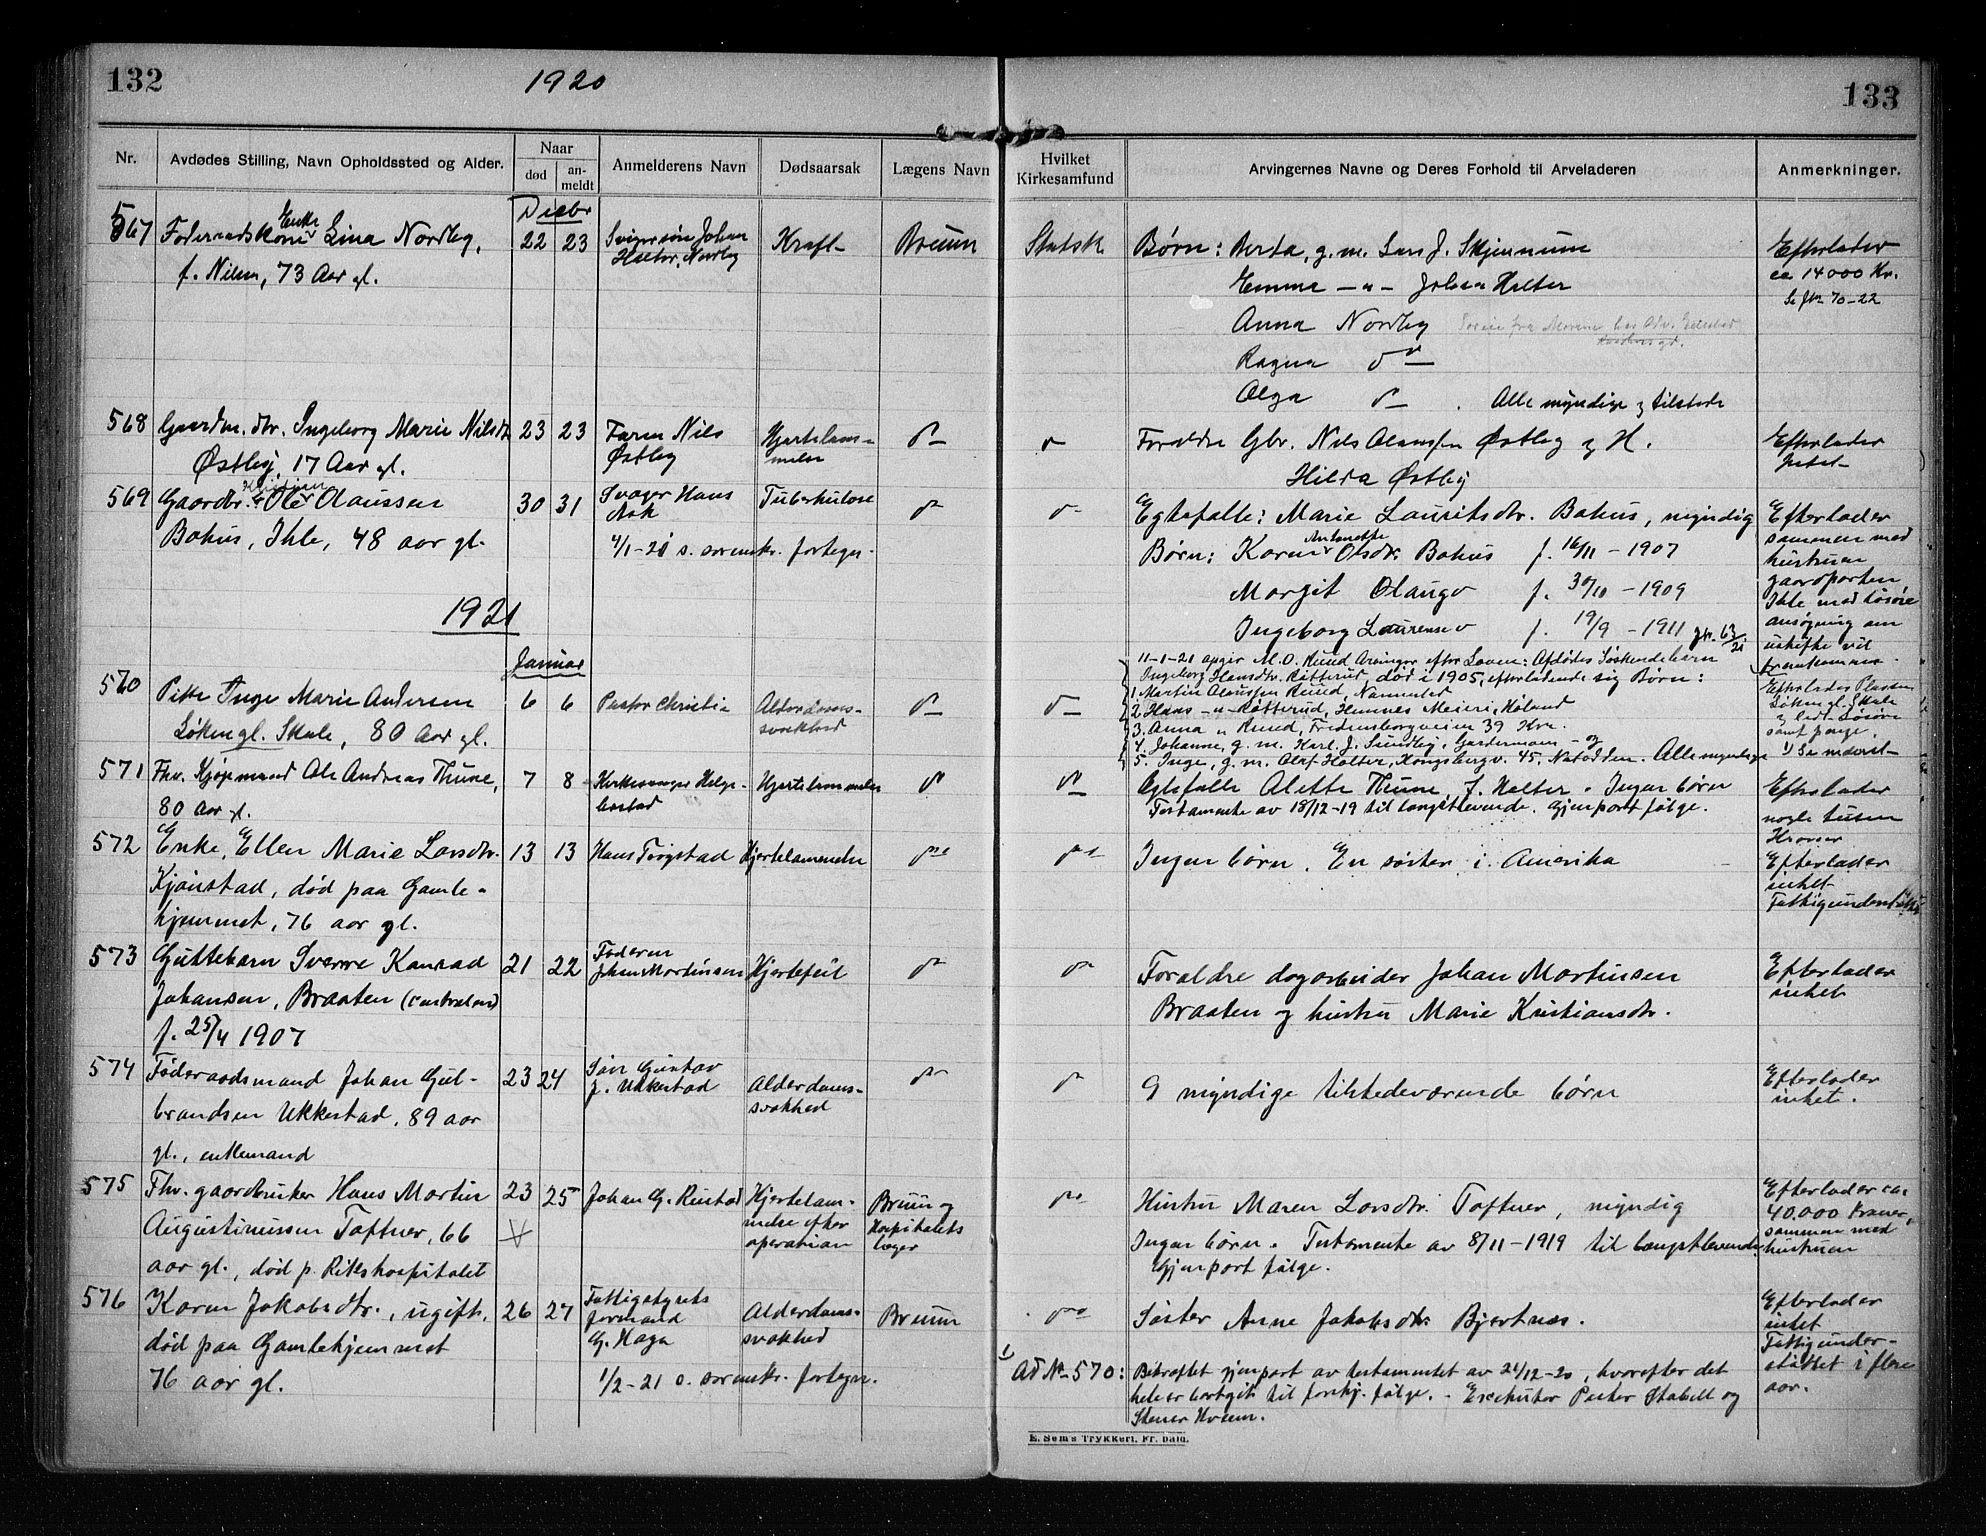 132
1920
133
Nr.
Avdødes Stilling, Navn Opholdssted og Alder.
Naar
død
an-
meldt
Anmelderens Navn
Dødsaarsak
Lægens Navn
Hvilket
Kirkesamfund
Arvingernes Navne og Deres Forhold til Arveladeren
Anmerkninger.
Decbr
567 Føderaadskone Enke Lina Nordby, 22 23 Svigersøn Johan Kræft Bruun Statsk Børn: Berta, g.m. Lars J. Skjennum Efterlader
f. Nilsen, 73 Aar gl. Halter, Nordby Emma — " — Johan Halter ca 14000 Kr.
Anna Nordby Se Jkn 70-22
Ragna do
Olga do . Alle myndige og tilstede
568 Gaardm. dtr. Ingeborg Marie Nilsdt 23 23 Faren Nils Hjertelam- do do Forældre Gbr. Nils Olaussen Østby og H. Efterlader
Østby, 17 Aar gl. Østby melse Hilda Østby intet
569 Gaardbr. Kristian Ole Olaussen 30 31 Svoger Hans Tuberkulose do do Egtefælle: Marie Lauritsdtr. Bakus, myndig Efterlader
Bakus, Ihle, 48 aar gl. Ask Børn: Karen Antonette Olsdtr Bakus f. 16/11 - 1907 sammen med
4/1-21 s. sorenskr. fortegn. hustruen
Margit Olaug do f. 30/10 - 1909 gaardparten
Ihle med løsøre
1921 Ingeborg Laurense do f. 19/9 - 1911 jkr. 63/21 ansøgning om
uskifte vil
fremkomme
Januar
11-1-21 opgir M. O. Ruud Arvinger efter Loven: Afdødes Søskendebarn
Ingeborg Hansdtr. Røtterud, død i 1905, efterlatende sig Børn:
570 Pike Inge Marie Andersen 6 6 Pastor Christie Alderdoms- do do 1. Martin Olaussen Ruud, Nannestad Efterlader Plassen
Løkengl. Skole, 80 Aar gl. svakhed 2. Hans — " — Røtterud, Hemnes Meieri, Høland Løkengl. Skole
3. Anna " Ruud, Fredensborgveien 39 Kra. og lidt Løsøre
4. Johanne, g. m. Karl J. Sundby, Gardermoen - og samt penge.
5. Inge, g. m. Olaf Holter, Kongsbergv. 45, Notodden. Alle myndige 1) Se nederst
571 Fhv. Kjøpmand Ole Andreas Thune, 7 8 Kirkesanger Helge- Hjertelammelse do do Egtefælle Alette Thune, f. Halter. Ingen børn Efterlader
80 Aar gl. bostad Testamente av 18/12-19 til længstlevende. Gjenpart følge. nogle tusen
Kroner
572 Enke, Ellen Marie Larsdtr. 13 13 Hans Trøgstad Hjertelammelse do do Ingen børn. En søster i Amerika Efterlader
Kjønstad, død paa Gamle- intet
hjemmet, 76 aar gl. Fattigunderstøttet
573 Guttebarn Sverre Konrad 21 22 Faderen Hjertefeil do do Forældre dagarbeider Johan Martinsen Efterlader
Johansen, Braaten (centralen) Johan Martinsen Braaten og hustru Marie Kristiansdtr. intet
f. 25/4 1907
574 Føderaadsmand Johan Gul- 23 24 Søn Gustav Alderdoms- do do 9 myndige tilstedeværende børn Efterlader
brandsen Ukkestad, 89 aar J. Ukkestad svakhed intet.
gl., enkemand
575 Fhv. gaardbruker Hans Martin 23 25 Johan G. Rustad Hjertelam- Bruun og do Hustru Maren Larsdtr. Toftner, myndig Efterlader ca.
Augustinussen Toftner, 66 melse efter Hospitalets Ingen børn. Testamente av 8/11-1919 til længstlevende 40.000 kroner,
aar gl., død p. Rikshospitalet operation læger Gjenpart følge. sammen med
hustruen
576 Karen Jakobsdtr., ugift, 26 27 Fattigstyrets Alderdoms- Bruun do Søster Anne Jakobsdtr Bjertnæs. Efterlader
død paa Gamlehjemmet formand svakhed intet
76 aar gl. G. Haga Fattigunder-
1/2-21 s. sorenskr. fortegn. støttet i flere
aar.
1) Ad No 570: Bekræftet gjenpart av testamentet av 24/12-20, hvorefter det
hele er bortgit til forskj. følge. - Executor Peter Stabell og
Stener Hvesum.
E. Sem's Trykkeri, Fr. hald.